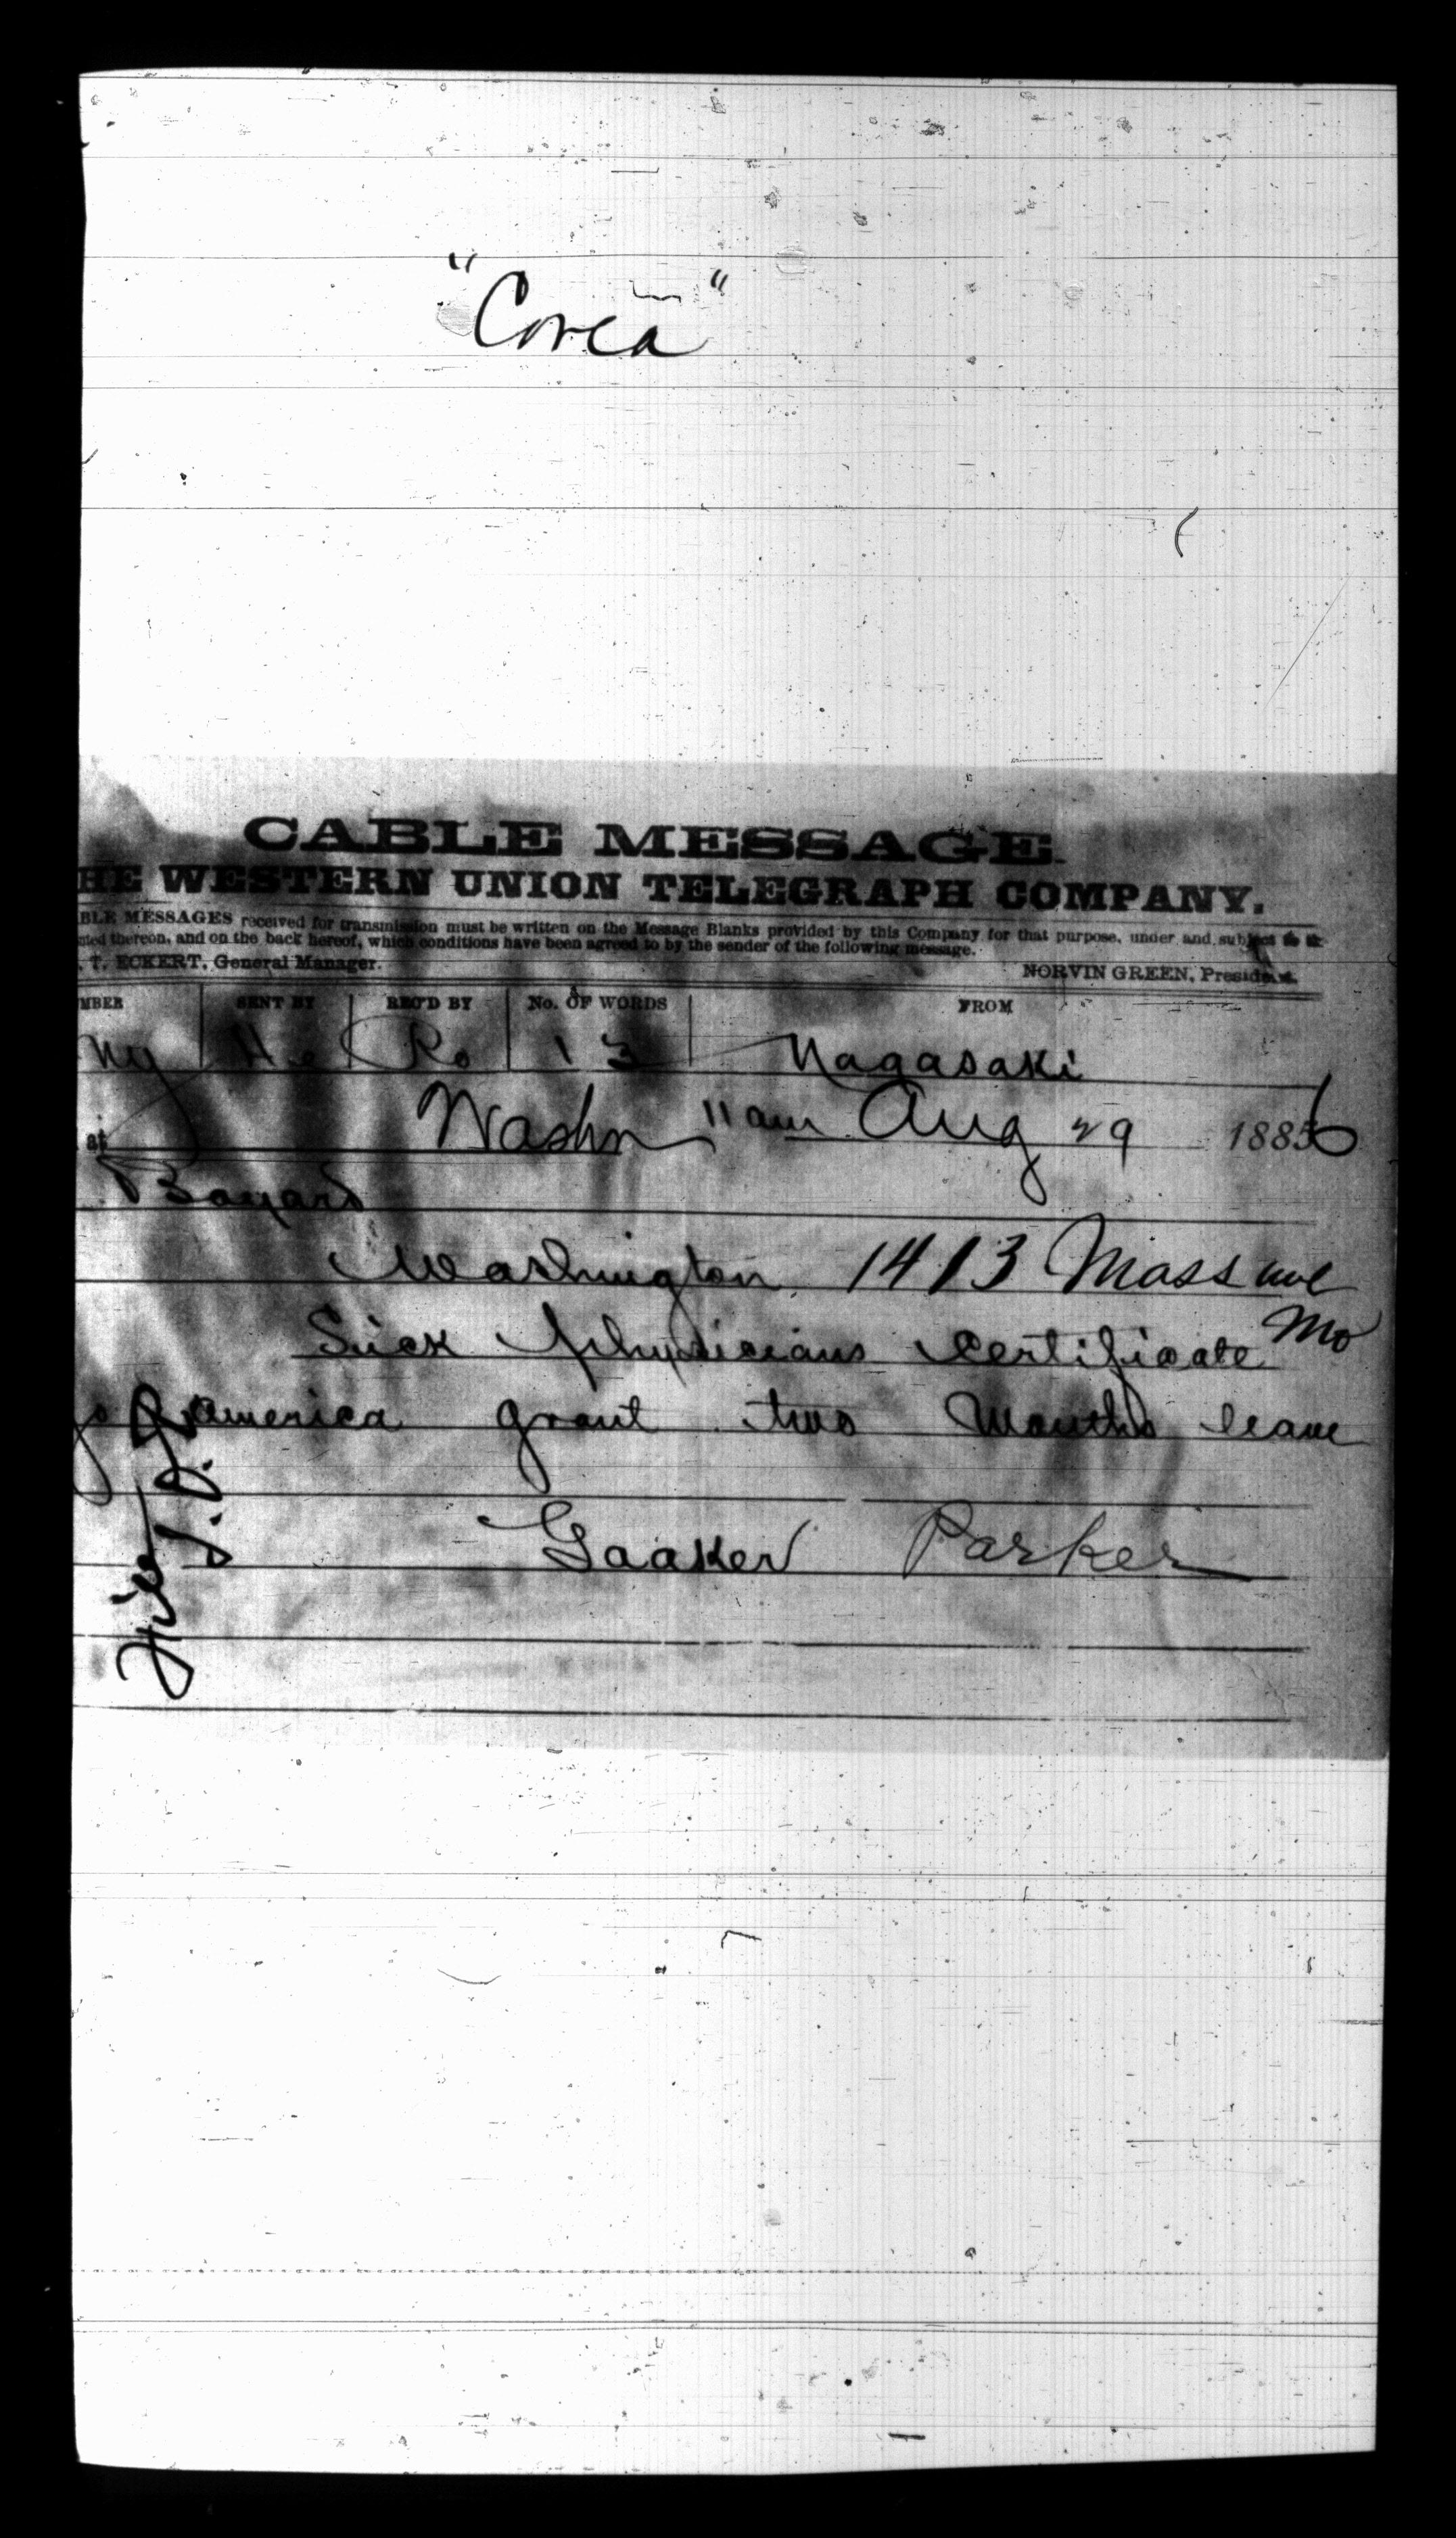 "Corea"
CABLE MESSAGE.
HE WESTERN UNION TELEGRAPH COMPANY.
BLE MESSAGES received for transmission must be written on the Message Blanks provided by this Company for that purpose, under and subject to
nted thereon, and on the back hereof, which conditions have been agreed to by the sender of the following message.
. T. ECKERT, General Manager.
NORVIN GREEN, President.
MBER SENT BY REC'D BY No. OF WORDS FROM
Ny He Ro 13 Nagasaki
at Washn 11 am Aug 29 1886
Bayard
Washington 1413 Mass ave
Sick physicians certificate Mo
go america grant two Months leave
Gaaker Parker
File